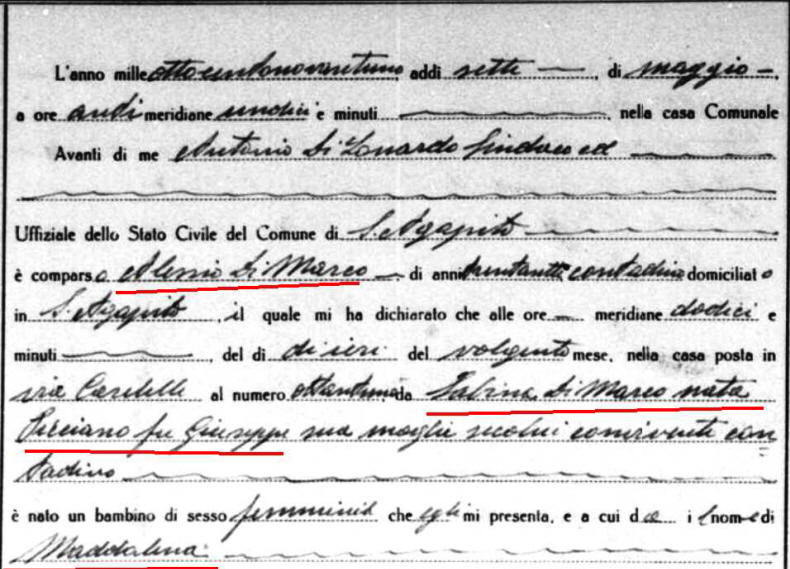 L'anno mille ottocentonovantuno, addì sette, di maggio,
a ore anti meridiane undici e minuti, nella casa Comunale
Avanti di me Antonio Di Lonardo Sindaco ed
Uffiziale dello Stato Civile del Comune di S. Agapito
è comparso Alessio Di Marco, di anni contadino domiciliato
in S. Agapito, il quale mi ha dichiarato che alle ore meridiane dodici e
minuti, del dì di ieri del volgente mese, nella casa posta in
via Caselle al numero ottantuno da Sabina Di Marco nata
Picciano fu Giuseppe sua moglie secolui convivente con
tadina
è nato un bambino di sesso femminile che egli mi presenta, e a cui dà il nome di
Maddalena